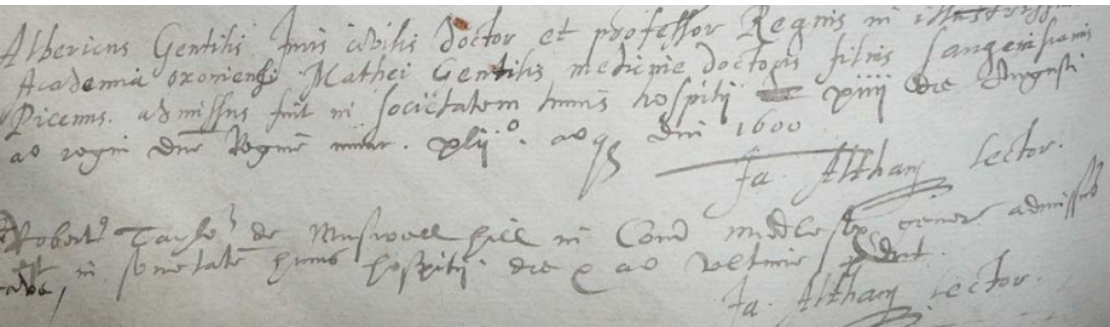 Albericus Gentilis Juris civilis doctor et professor Regius in illustrissima
Academia oxoniensi Mathei Gentilis medicine doctoris filius Sangenesianus
Picenus. admissus fuit in societatem huius hospitij xiiij die Augusti
ao regni dne Regine xlijo. aoqz dni 1600
Ja. Altham Lector.
Robert9 Taylor de Muswell hill in Com midlesex gener admissus
in societate huius hospitij die ao ultimis
Ja. Altham Lector.